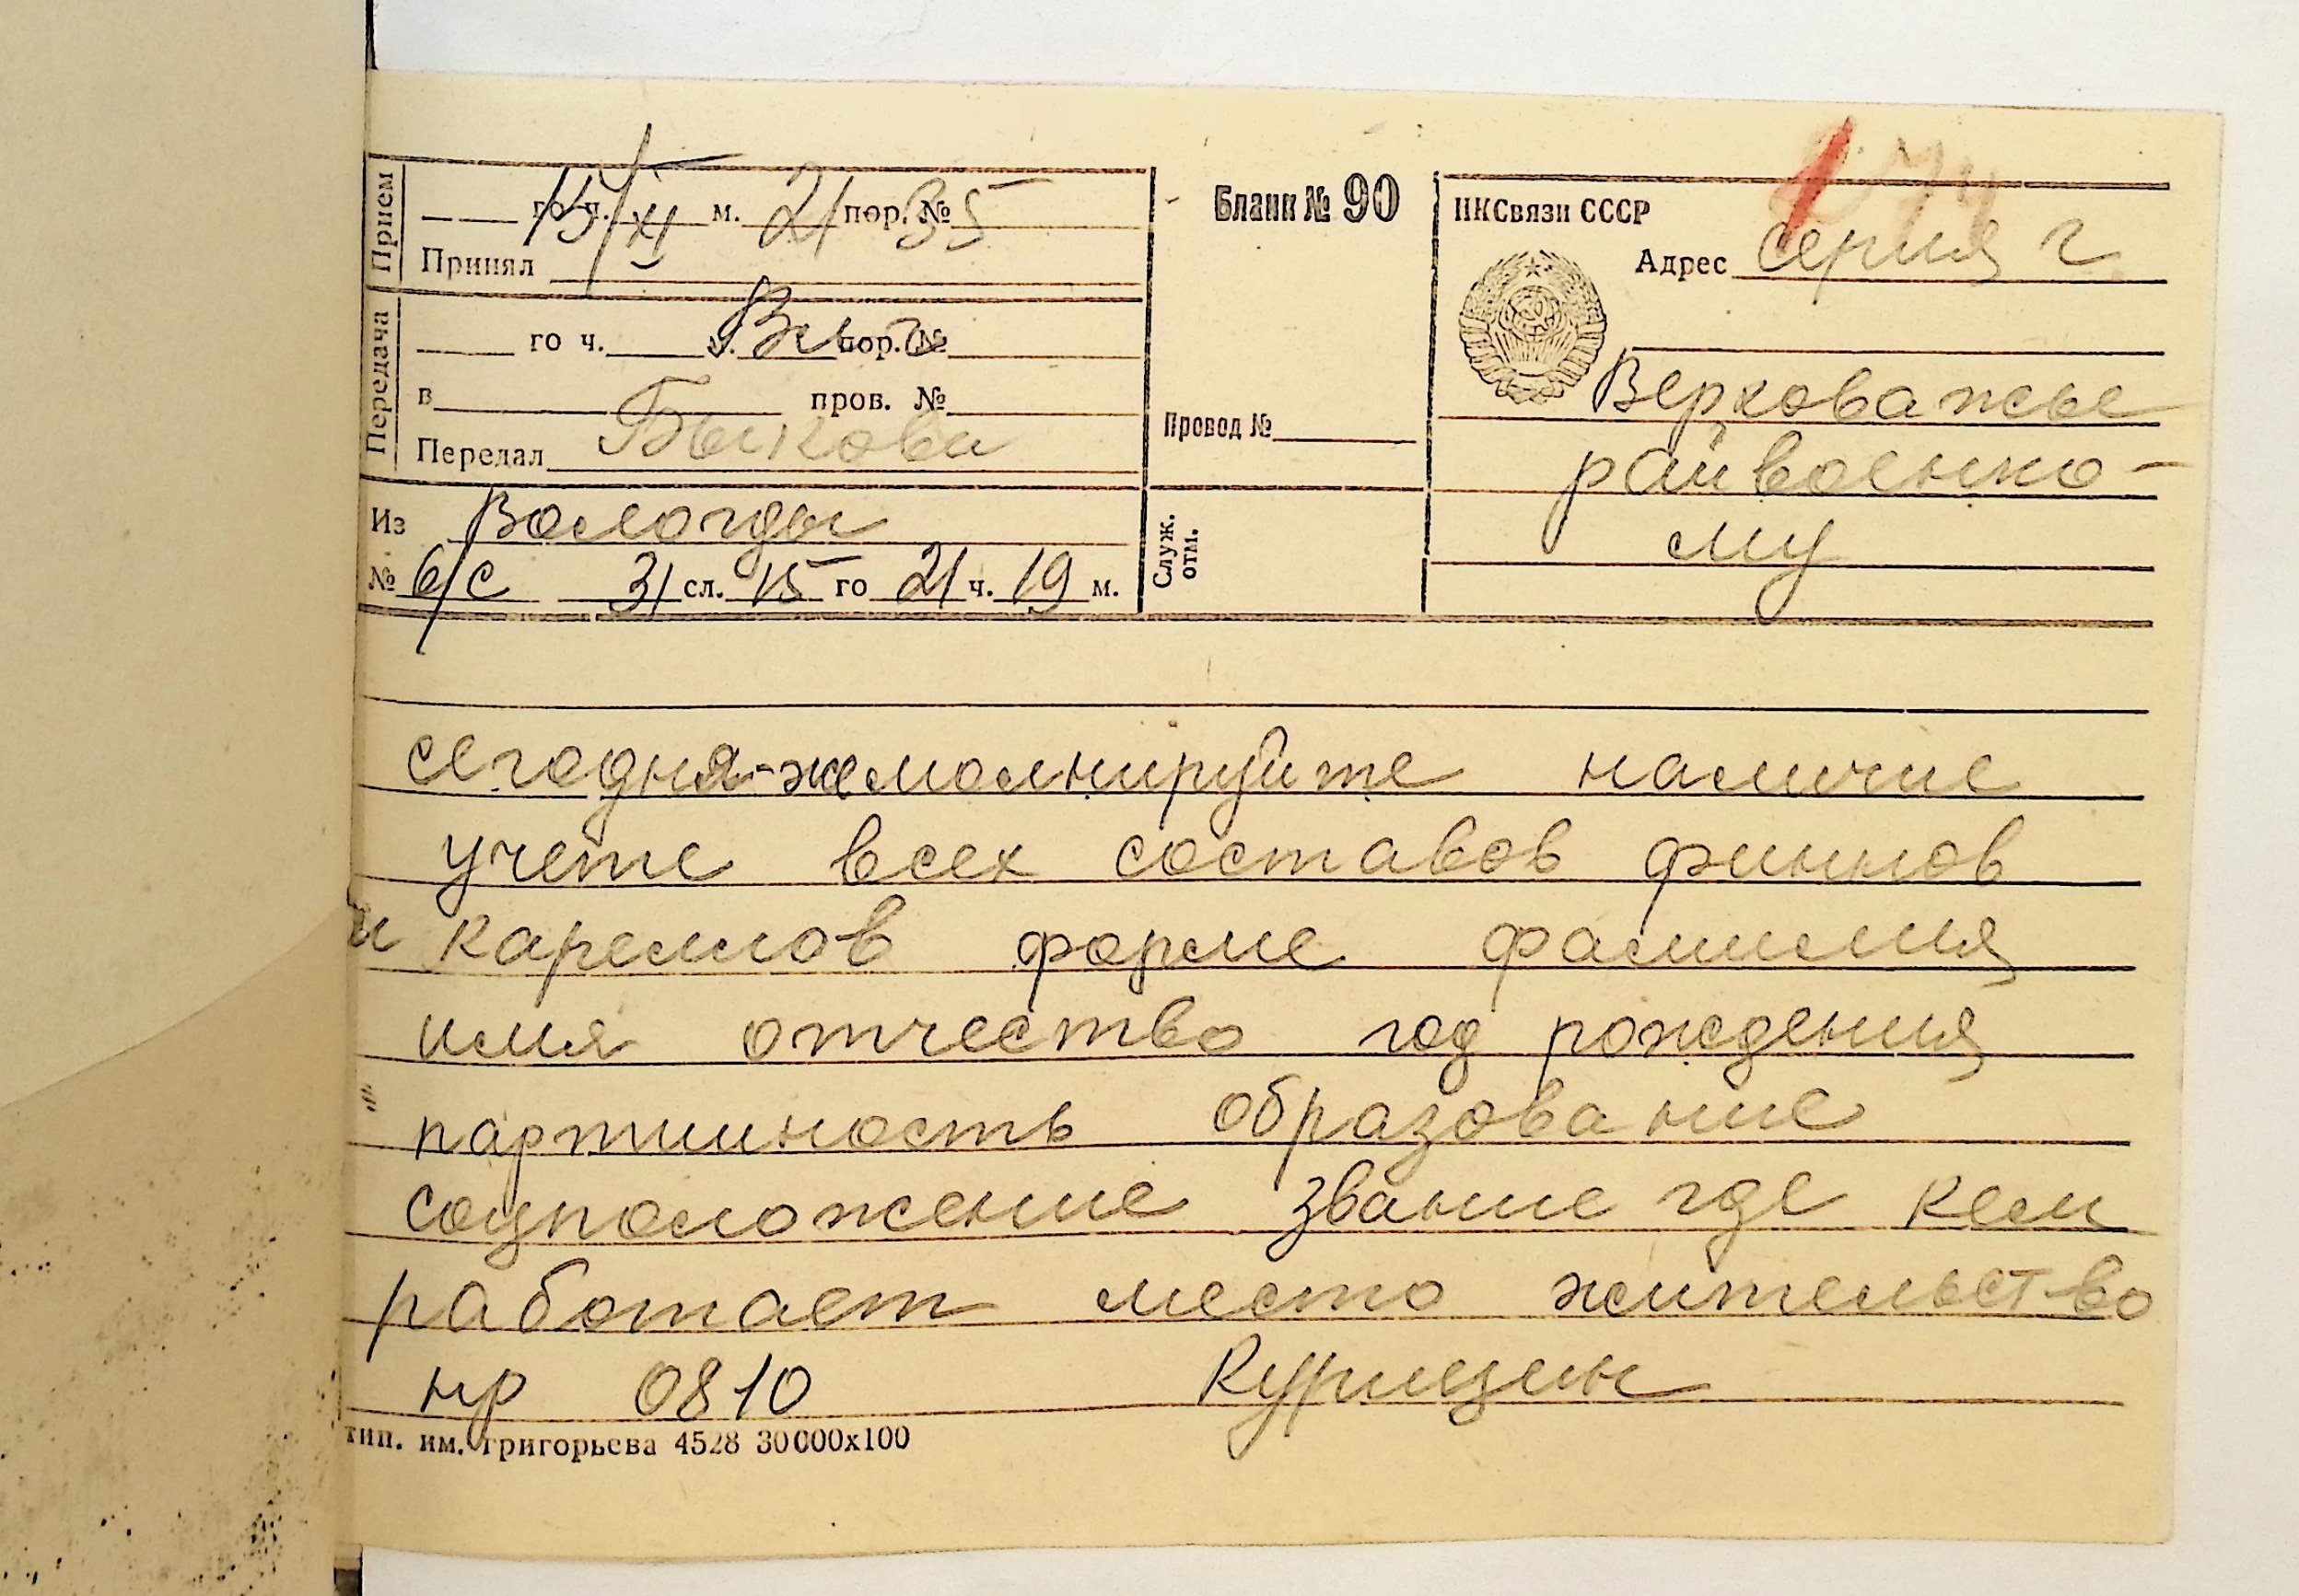 Прием
15/XI го ч. м. 21 пор. № 35
Принял
Передача
го ч. м. пор. №
в пров. №
Передал Быкова
Из Вологды
№ 6/с 31 сл. 15 го 21 ч. 19 м.
Бланк № 90
Провод №
Служ. отм.
НКСвязи СССР
Адрес серия г
Верховажье
райвоенко-
му
сегодня-же молнируйте наличие
учете всех составов финнов
и карелов форме фамилия
имя отчество год рождения
партийность образование
соцположение звание где кем
работает место жительство
нр 0810 Курицын
тип. им. Григорьева 4528 30000х100